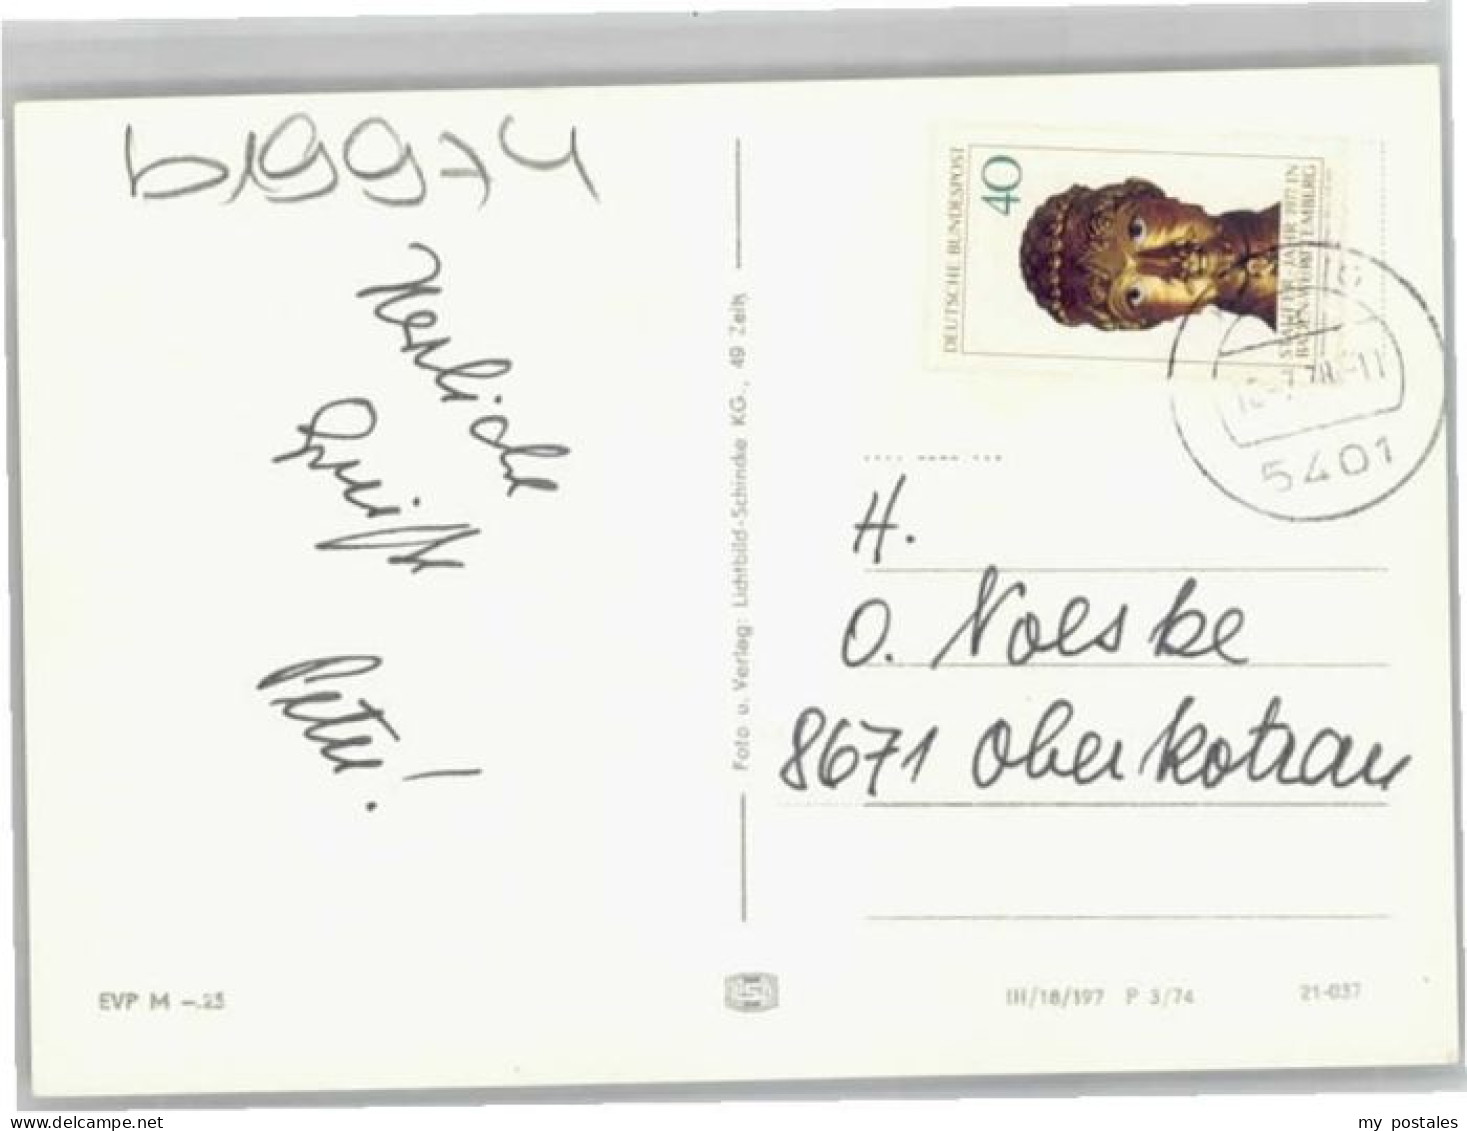 Herzliche
Grüße
Peter!
Foto u. Verlag: Lichtbild-Schincke KG., 49 Zeitz
EVP M -.25
III/18/197 P 3/74
21-037
DEUTSCHE BUNDESPOST
40
STAUFER-JAHR 1977 IN
BADEN-WÜRTTEMBERG
5401
H.
O. Noeske
8671 Oberkotzau
my postales